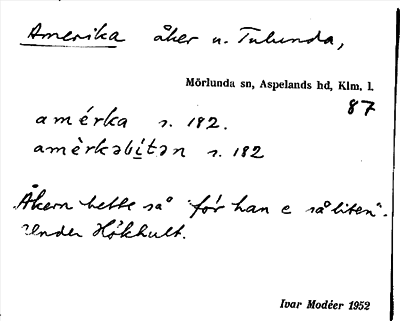 Amerika åker u. Tulunda,
Mörlunda sn, Aspelands hd, Klm. l.
87
amérka s. 182.
amèrkəbítən s. 182
Åkern hette så "för han e så liten".
Under Hökhult.
Ivar Modéer 1952